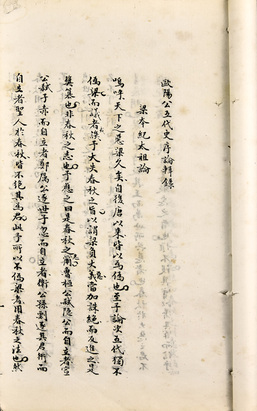 歐陽公五代史序論輯錄
梁本紀太祖論
嗚呼天下之惡梁久矣自後唐以來皆以為偽也至予論次五代獨不
偽梁而議者譏予大失春秋之旨以謂梁負大惡當加誅絕而反進之是
獎篡也非春秋之志也予應之曰是春秋之
公弒子赤而自立者鄭厲公逐世子忽而自立者衛公孫剽逐其君衎而
自立者聖人於春秋皆不絕其為君此予所以不偽梁者用春秋之法也然